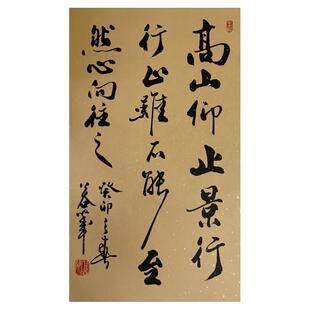 高山仰止景行
行止雖不能至
然心向往之
癸卯之春